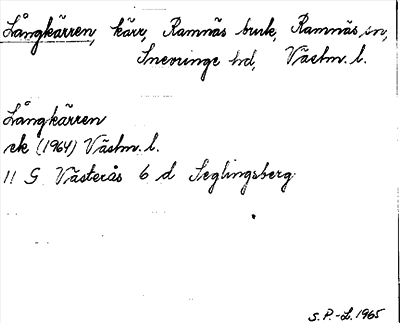 Långkärren, kärr, Ramnäs bruk, Ramnäs sn,
Snevringe hd, Västm. l.
Långkärren
ek (1964) Västm. l.
11 G Västerås 6 d Seglingsberg
S.P.-L. 1965